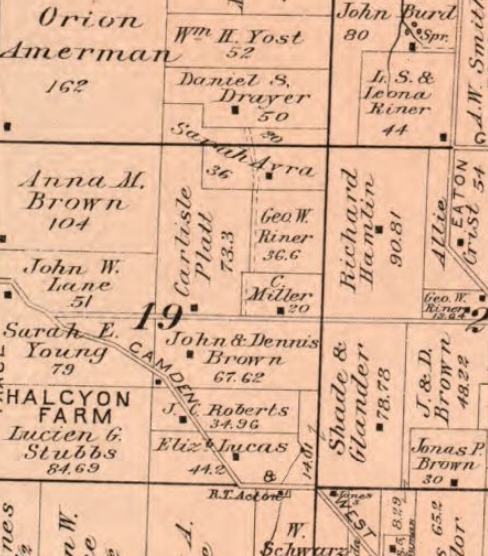 Orion
Amerman
162
Wm H. Yost
52
John Burd
80
Spr.
Daniel S.
Drayer
50
L. S. &
Leona
Riner
44
A.W. Smith
20
Sarah Ayra
36
Anna M.
Brown
104
Carlisle
Platt
73.3
Geo. W.
Riner
36.6
Richard
Hamlin
90.81
Allie
Crist 54
EATON
G
John W.
Lane
51
C.
Miller
20
Geo. W.
Riner
19
2
Sarah E.
Young
79
CAMDEN
John & Dennis
Brown
67.62
Shade &
Glander
78.78
J. & D.
Brown
48.22
HALCYON
FARM
Lucien G.
Stubbs
84.69
J. Roberts
34.96
Elizth Lucas
44.2
&
R.T. Acton
14.01
Jonas P.
Brown
30
WEST
Jones
8.29
65.2
W.
Schwarz
A.